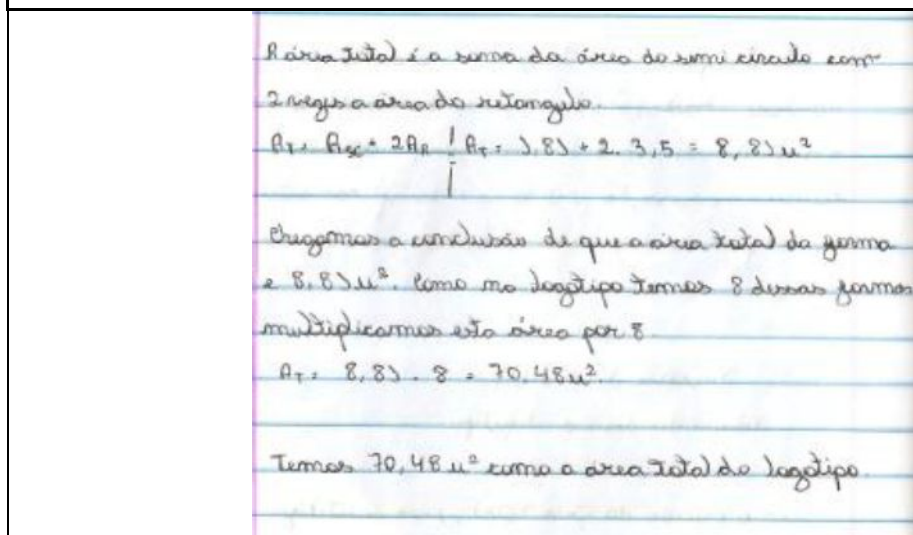 A área total é a soma da área do semi circulo com
2 vezes a área do retangulo.
AT = ASC + 2AR | AT = 1,81 + 2. 3,5 = 8,81 u²
Chegamos a conclusão de que a área total da forma
e 8,81 u². Como no logotipo temos 8 dessas formas
multiplicamos esta área por 8
AT = 8,81 . 8 = 70,48 u².
Temos 70,48 u² como a área total do logotipo.